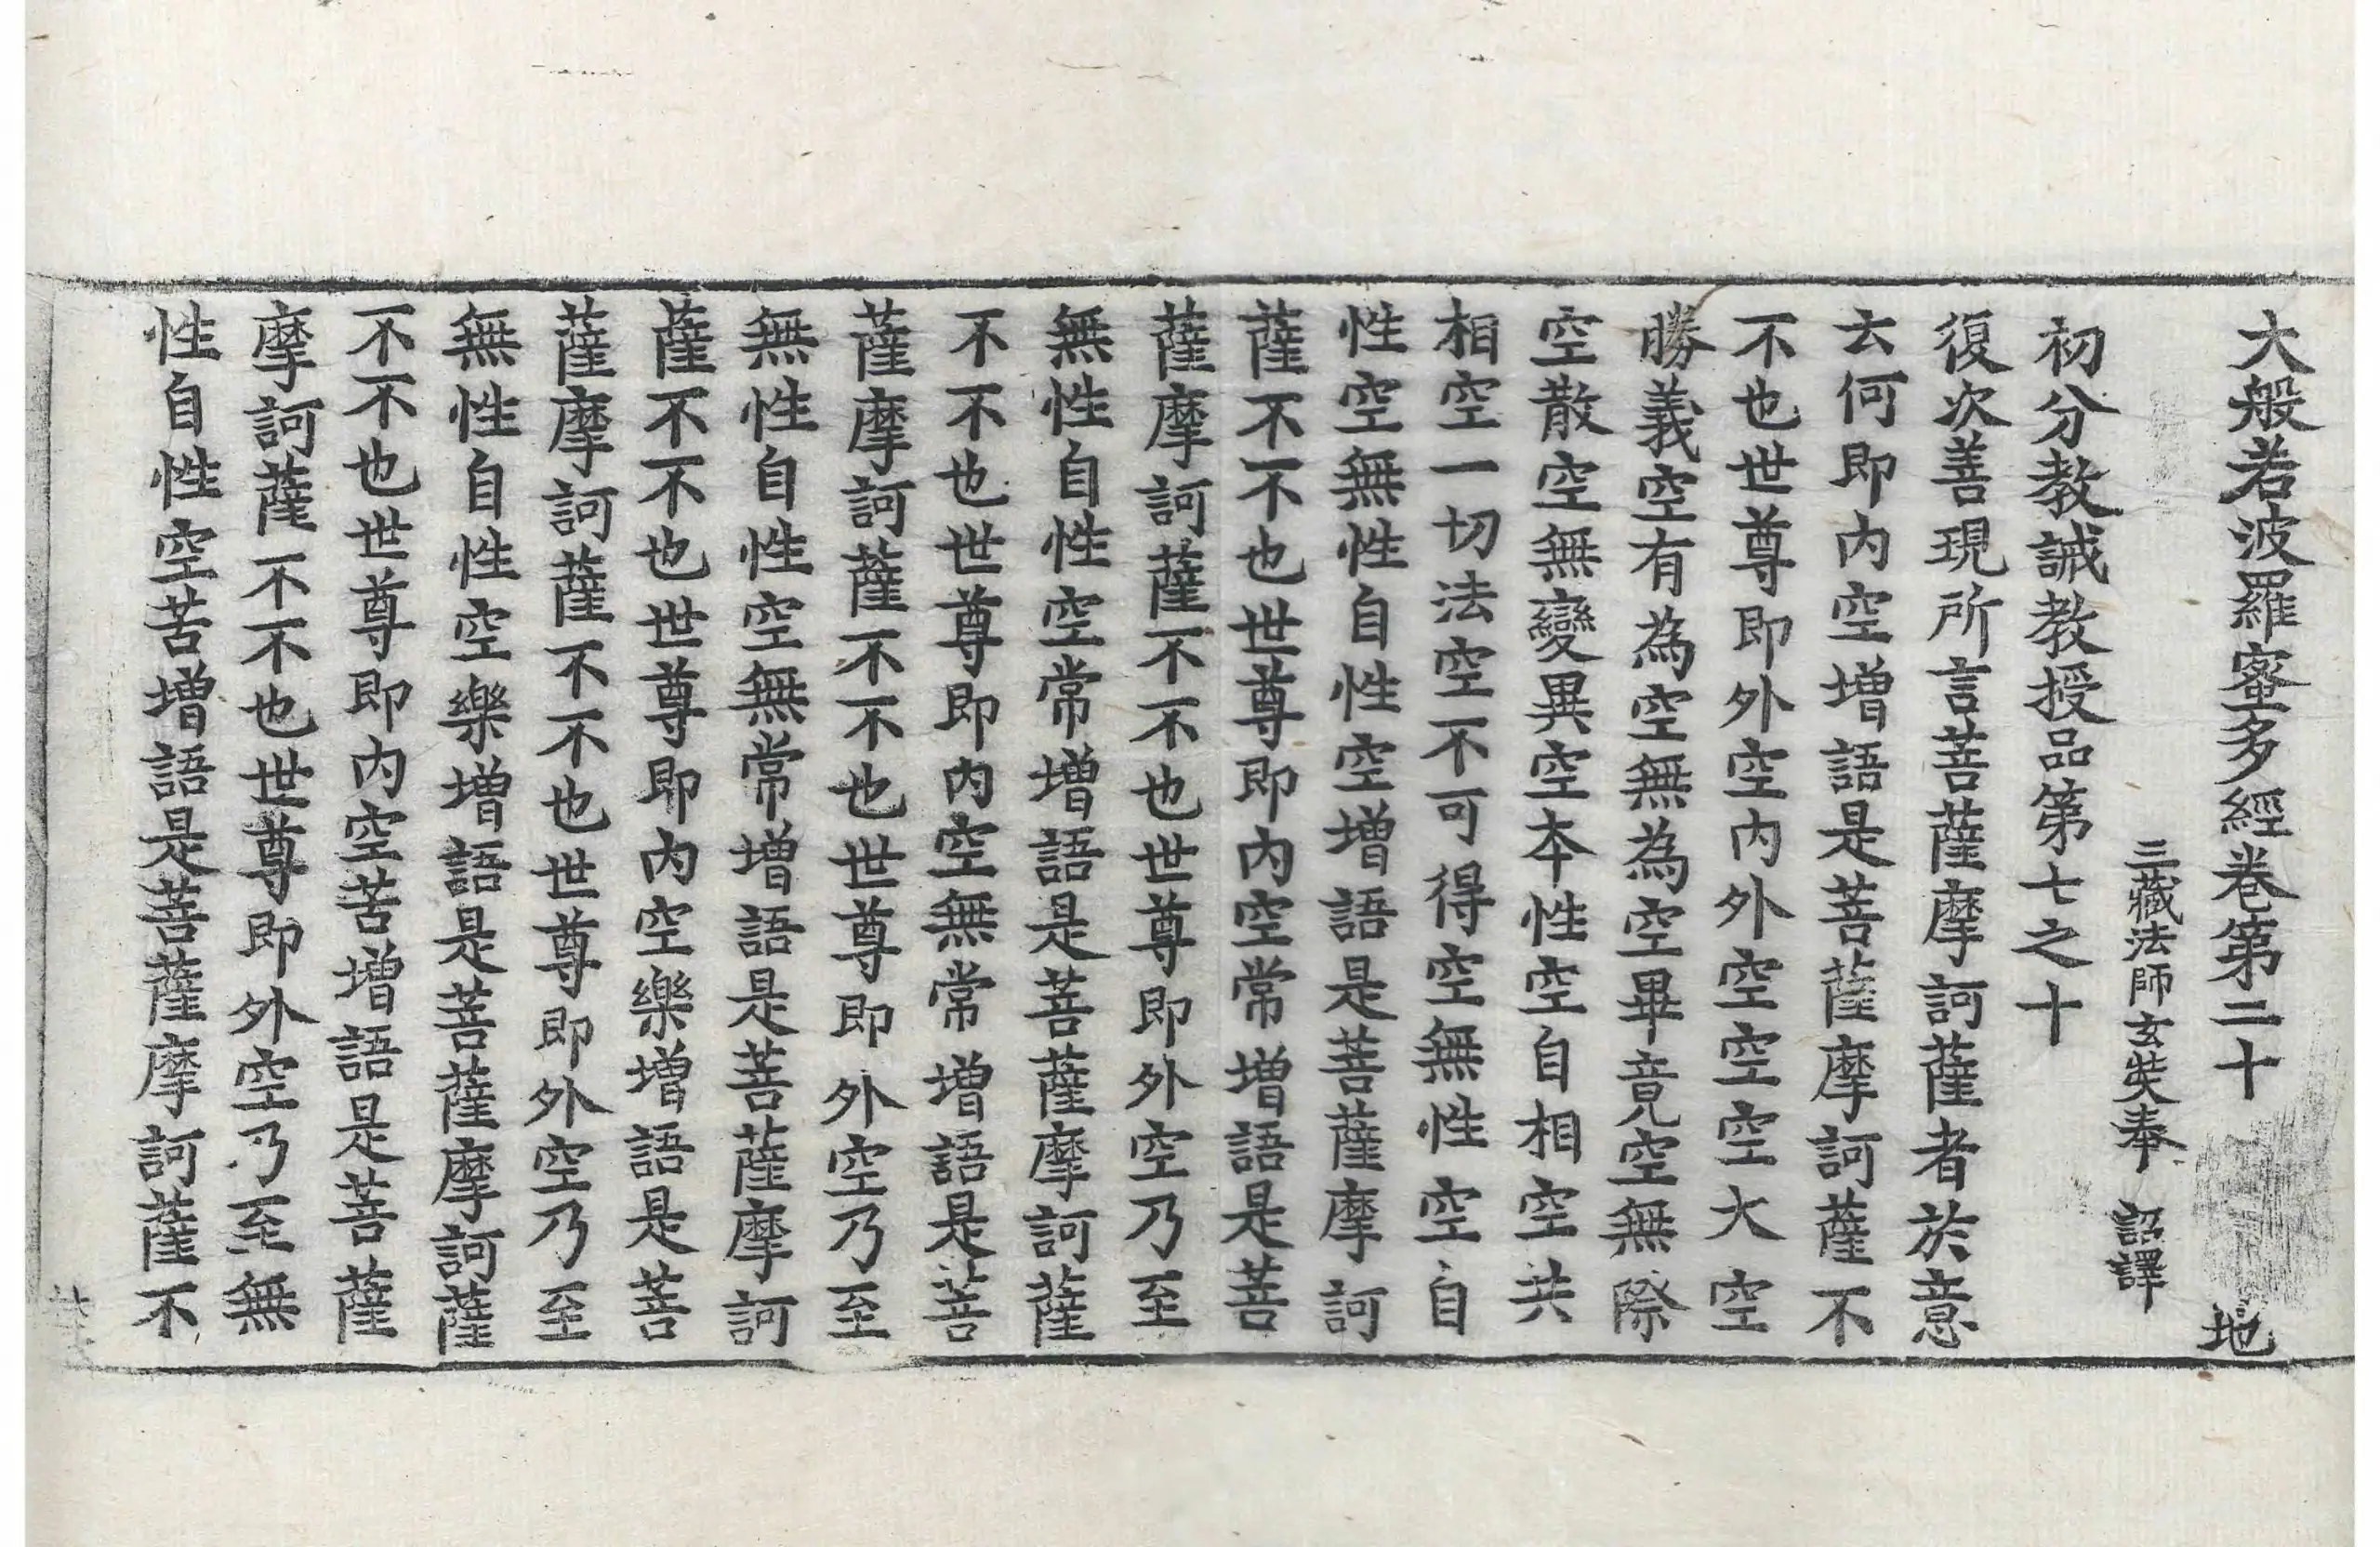 大般若波羅蜜多經卷第二十 地
三藏法師玄奘奉 詔譯
初分教誡教授品第七之十
復次善現所言菩薩摩訶薩者於意
云何即內空增語是菩薩摩訶薩不
不也世尊即外空內外空空空大空
勝義空有為空無為空畢竟空無際
空散空無變異空本性空自相空共
相空一切法空不可得空無性空自
性空無性自性空增語是菩薩摩訶
薩不不也世尊即內空常增語是菩
薩摩訶薩不不也世尊即外空乃至
無性自性空常增語是菩薩摩訶薩
不不也世尊即內空無常增語是菩
薩摩訶薩不不也世尊即外空乃至
無性自性空無常增語是菩薩摩訶
薩不不也世尊即內空樂增語是菩
薩摩訶薩不不也世尊即外空乃至
無性自性空樂增語是菩薩摩訶薩
不不也世尊即內空苦增語是菩薩
摩訶薩不不也世尊即外空乃至無
性自性空苦增語是菩薩摩訶薩不